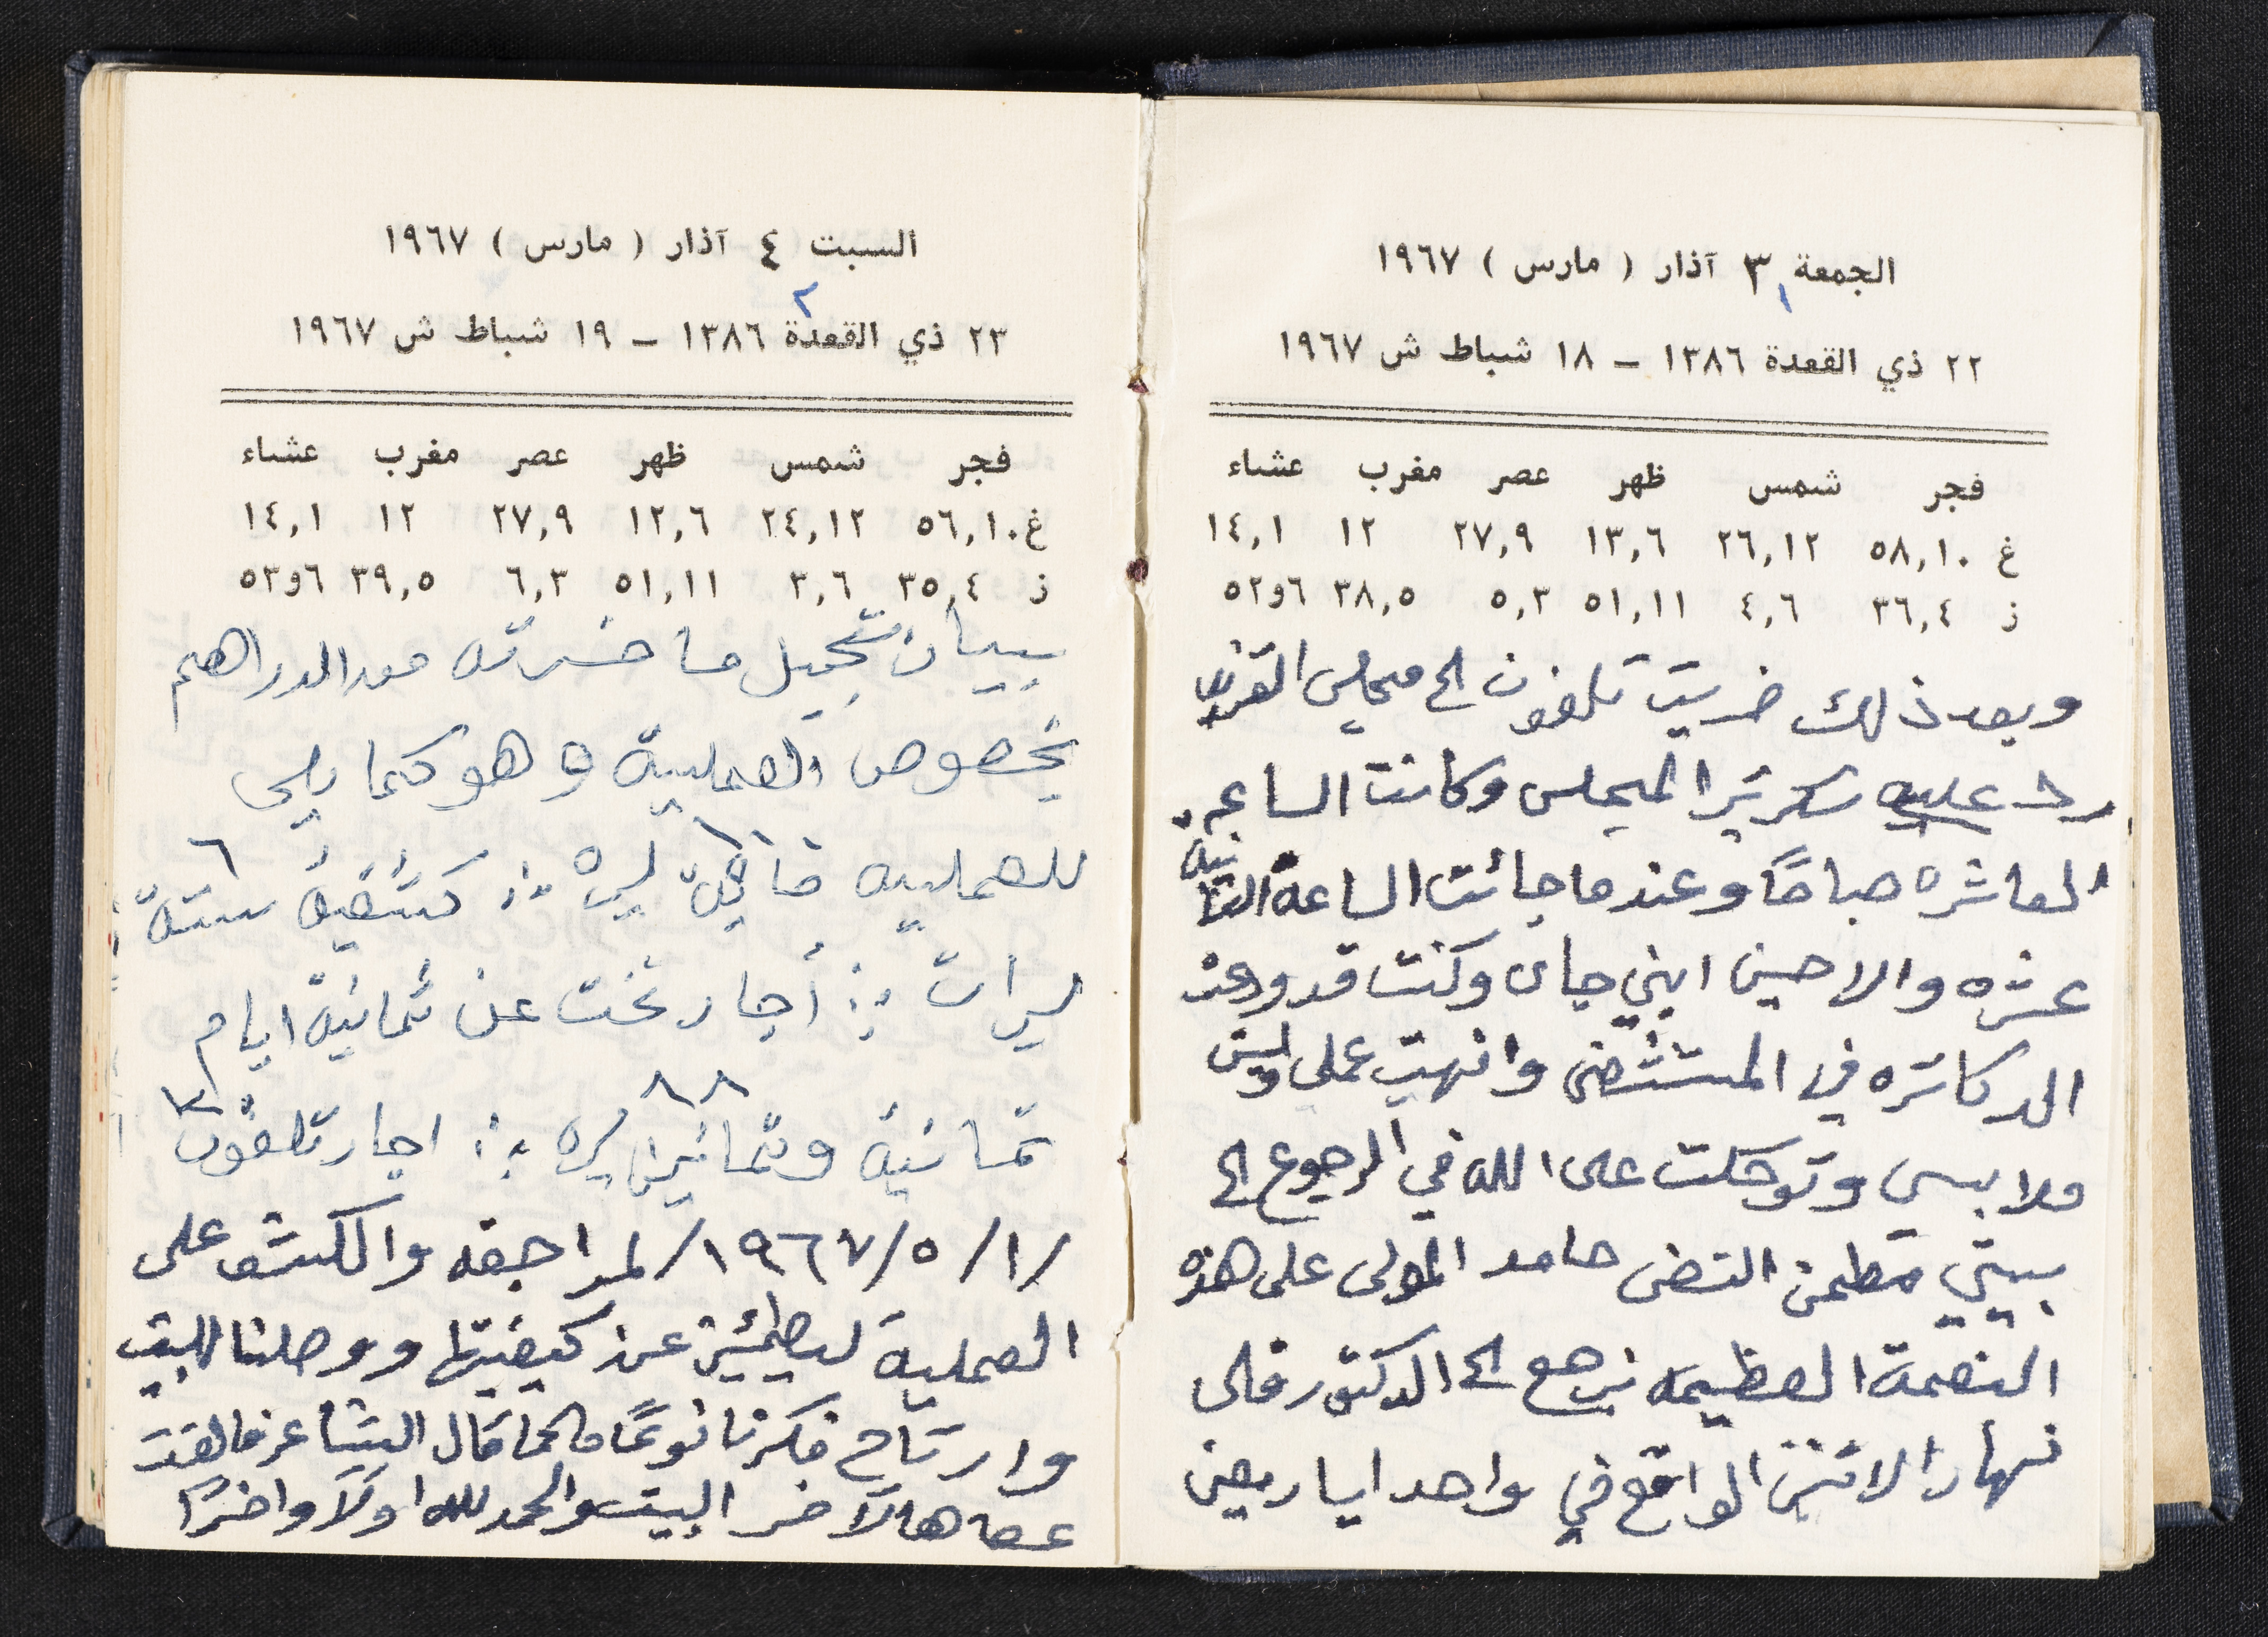 الجمعة ٣ آذار ( مارس ) ١٩٦٧
١
٢٢ ذي القعدة ١٣٨٦ – ١٨ شباط ش ١٩٦٧
فجر شمس ظهر عصر مغرب عشاء
غ ٥٨,١٠ ٢٦,١٢ ١٣,٦ ٢٧,٩ ١٢ ١٤,١
ز ٣٦,٤ ٤,٦ ٥١,١١ ٥,٣ ٣٨,٥ ٦و٥٢
وبعد ذلك ضربت تلفون الى مجلس
رد عليه سكرتير المجلس وكانت الساعه
العاشره صباحًا وعندما جائت الساعة الثانية
عشره والا حسين ابني جاى وكنت قد ودعت
الدكاتره في المستشفى وانهيت عملي ولبست
ملابسي وتوكلت على الله في الرجوع الى
بيتي مطمن النفس حامد المولى على هذه
النعمة العظيمه نرجع الى الدكتور قالى
نهار الاثنين الواقع في واحد ايار يعني
السبت ٤ آذار ( مارس ) ١٩٦٧
٢
٢٣ ذي القعدة ١٣٨٦ – ١٩ شباط ش ١٩٦٧
فجر شمس ظهر عصر مغرب عشاء
غ ٥٦,١٠ ٢٤,١٢ ١٢,٦ ٢٧,٩ ١٢ ١٤,١
ز ٣٥,٤ ٣,٦ ٥١,١١ ٦,٣ ٣٩,٥ ٦و٥٣
بيان تسجيل ما خسرته من الدراهم
بخصوص العملية وهو كما يلى
للعمليه ليره :: كشفية ستة ٦
ليرات :: أجار تخت عن ثمانية ايام
ثمانية وثمانين ليره ٨٨ :: اجار تلفون
/١/٥/١٩٦٧/ لمراجعه والكشف على
العملية ليطمئن عن كيفيتها ووصلنا للبيت
وارتاح فكرنا نوعًا ما كما قال الشاعر فالقت
عصاها لآخر البيت والحمد لله اولاً واخرًا